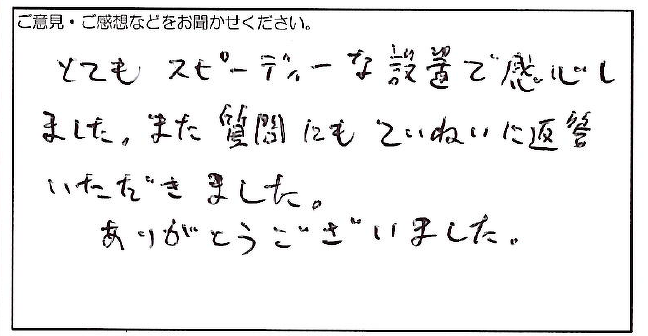 ご意見・ご感想などをお聞かせください。
とてもスピーディーな設置で感心し
ました。また質問にもていねいに返答
いただきました。
ありがとうございました。